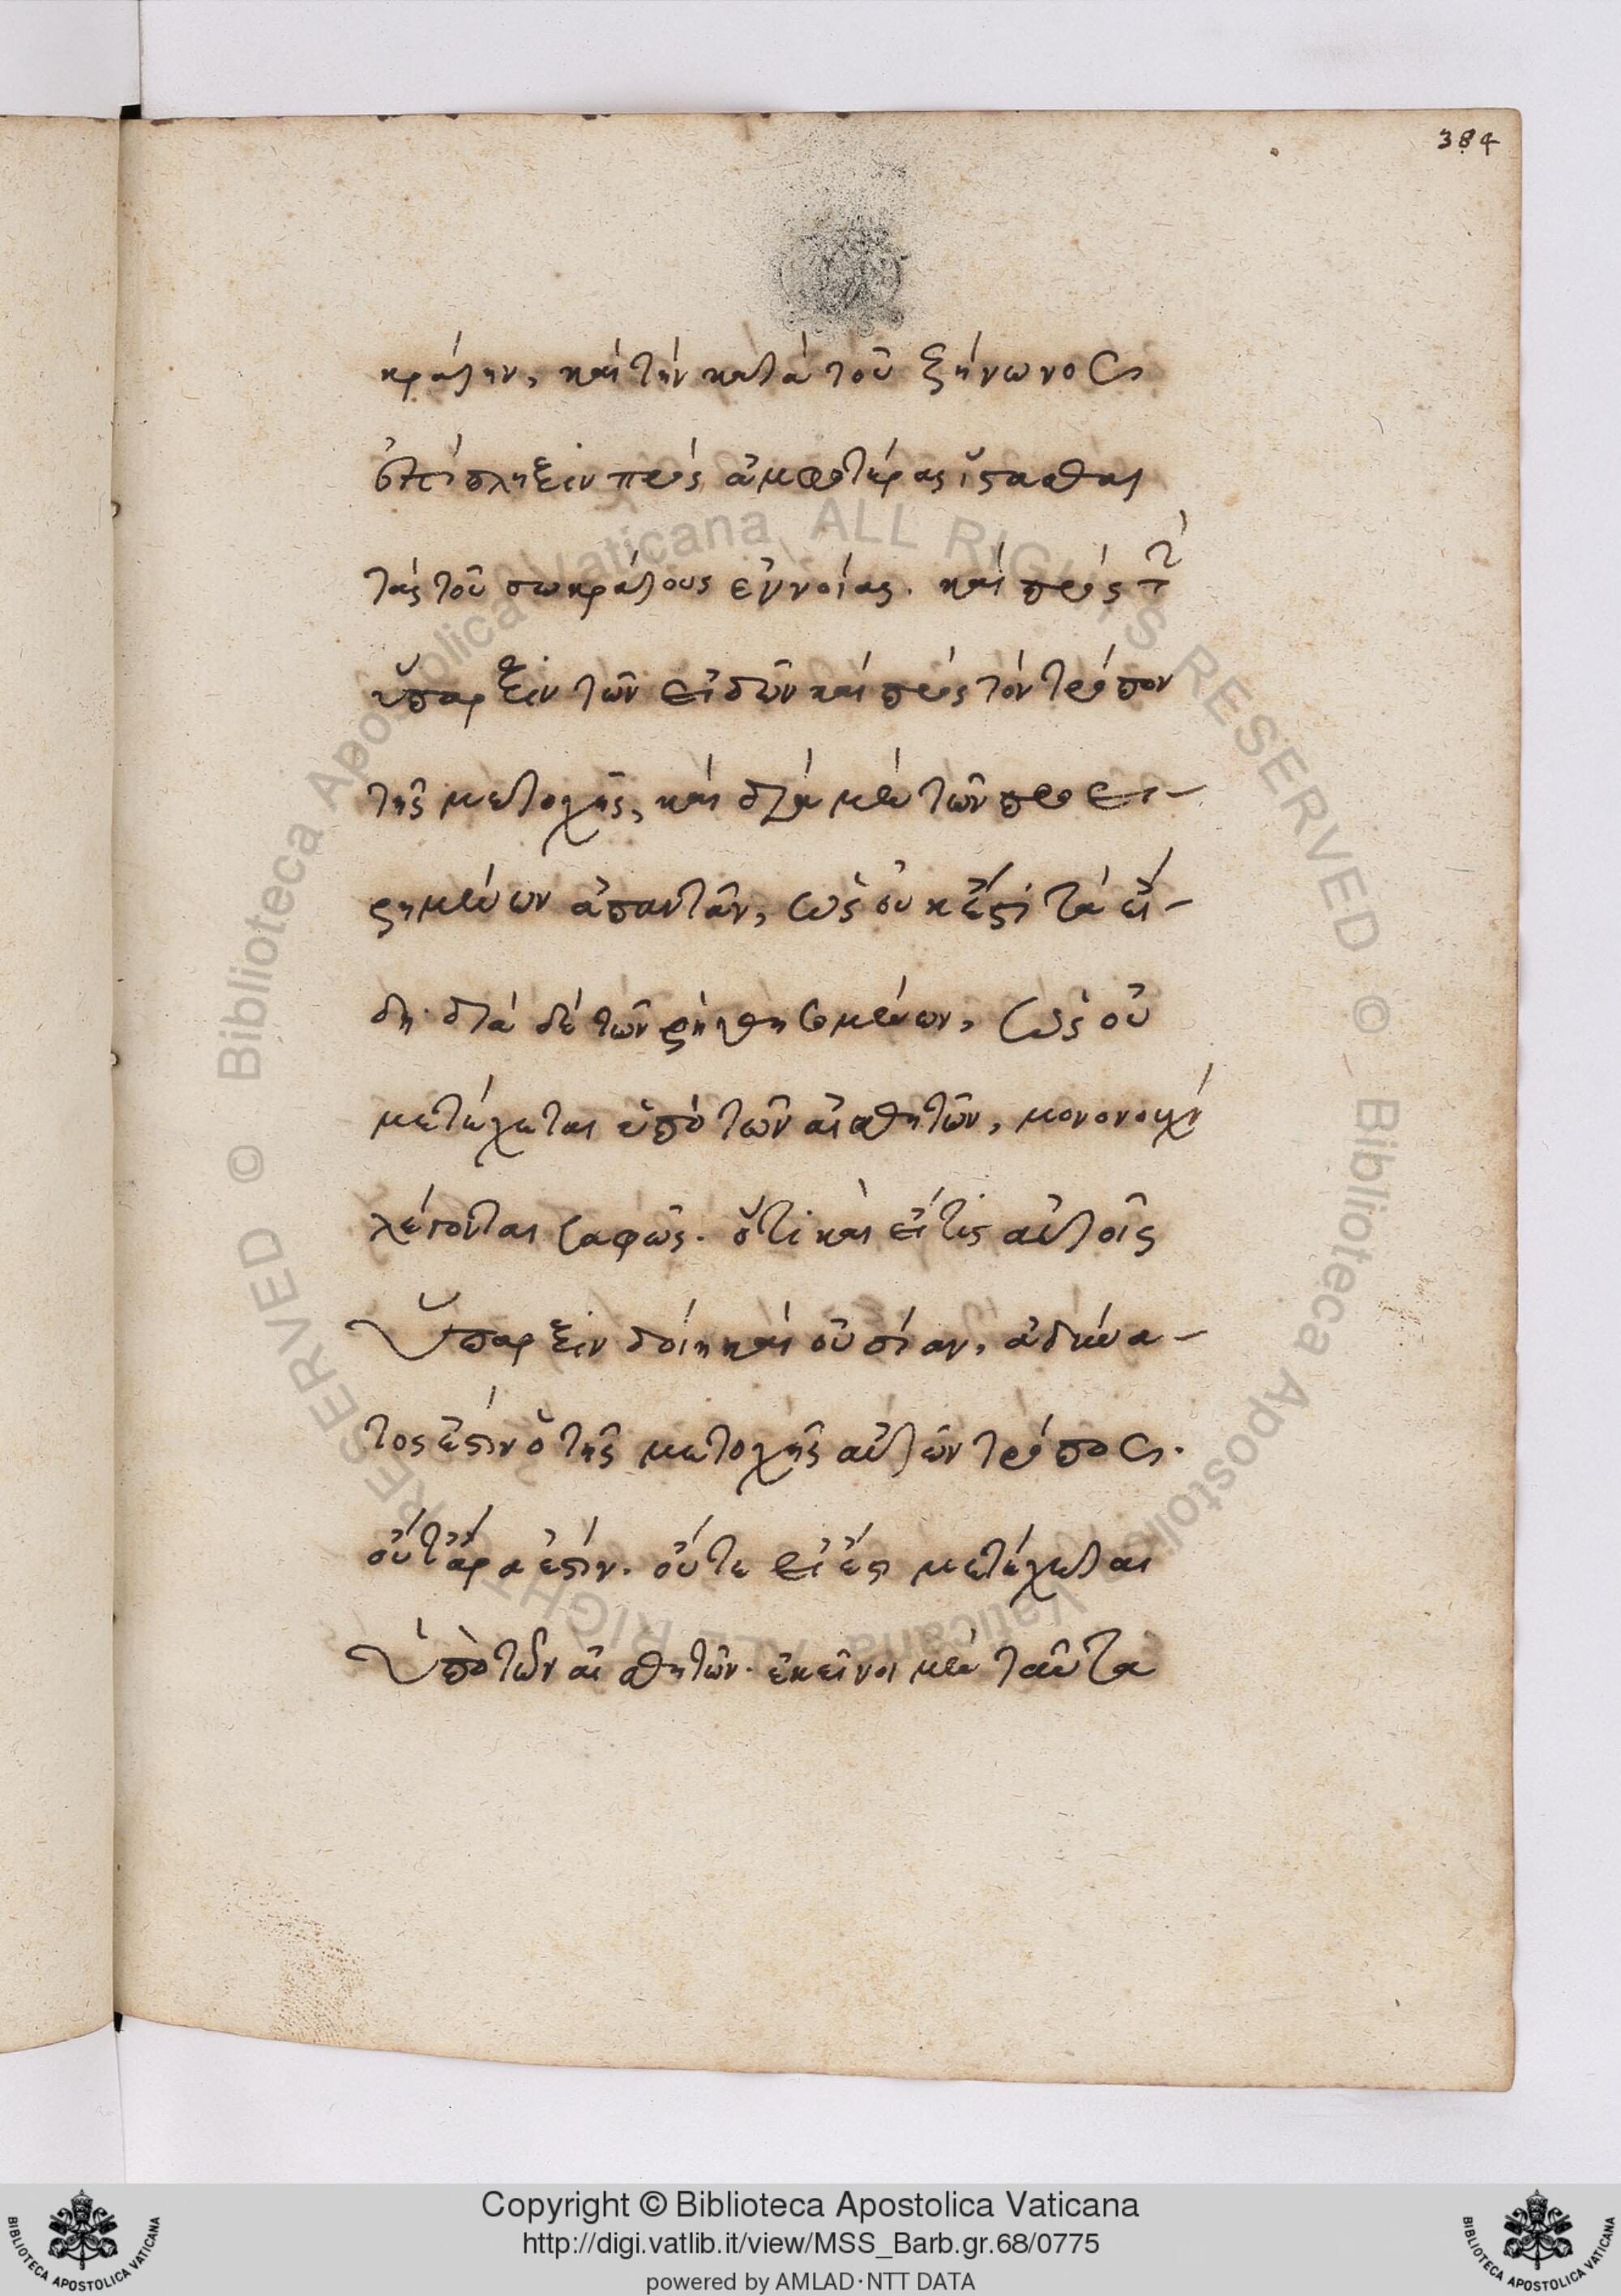 384
κράτην, καὶ τὴν κατὰ τοῦ ξήνωνος
ἐπίπληξιν πρὸς ἀμφοτέρας ἵστασθαι
τὰς τοῦ σωκράτους ἐννοίας. καὶ πρὸς τὴν
ὕπαρξιν τῶν εἰδῶν καὶ πρὸς τὸν τρόπον
τῆς μετοχῆς, καὶ διὰ μὲν τῶν προει-
ρημένων ἀπαντᾶν, ὡς οὐκ ἔστι τὰ εἴ-
δη· διὰ δὲ τῶν ῥηθησομένων, ὡς οὐ
μετέχεται ὑπὸ τῶν αἰσθητῶν, μονονουχὶ
λέγονται σαφῶς. ὅτι καὶ εἴ τις αὐτοῖς
ὕπαρξιν δοίη καὶ οὐσίαν, ἀδύνα-
τος ἐστιν ὁ τῆς μετοχῆς αὐτῶν τρόπος.
οὔτ' ἄρα ἐστίν. οὔτε εἰ ἔστι μετέχεται
ὑπὸ τῶν αἰσθητῶν. ἐκεῖνοι μὲν ταῦτα
© Biblioteca Apostolica Vaticana ALL RIGHTS RESERVED
© Biblioteca Apostolica Vaticana ALL RIGHTS RESERVED
Copyright © Biblioteca Apostolica Vaticana
http://digi.vatlib.it/view/MSS_Barb.gr.68/0775
powered by AMLAD·NTT DATA
BIBLIOTECA APOSTOLICA VATICANA
BIBLIOTECA APOSTOLICA VATICANA